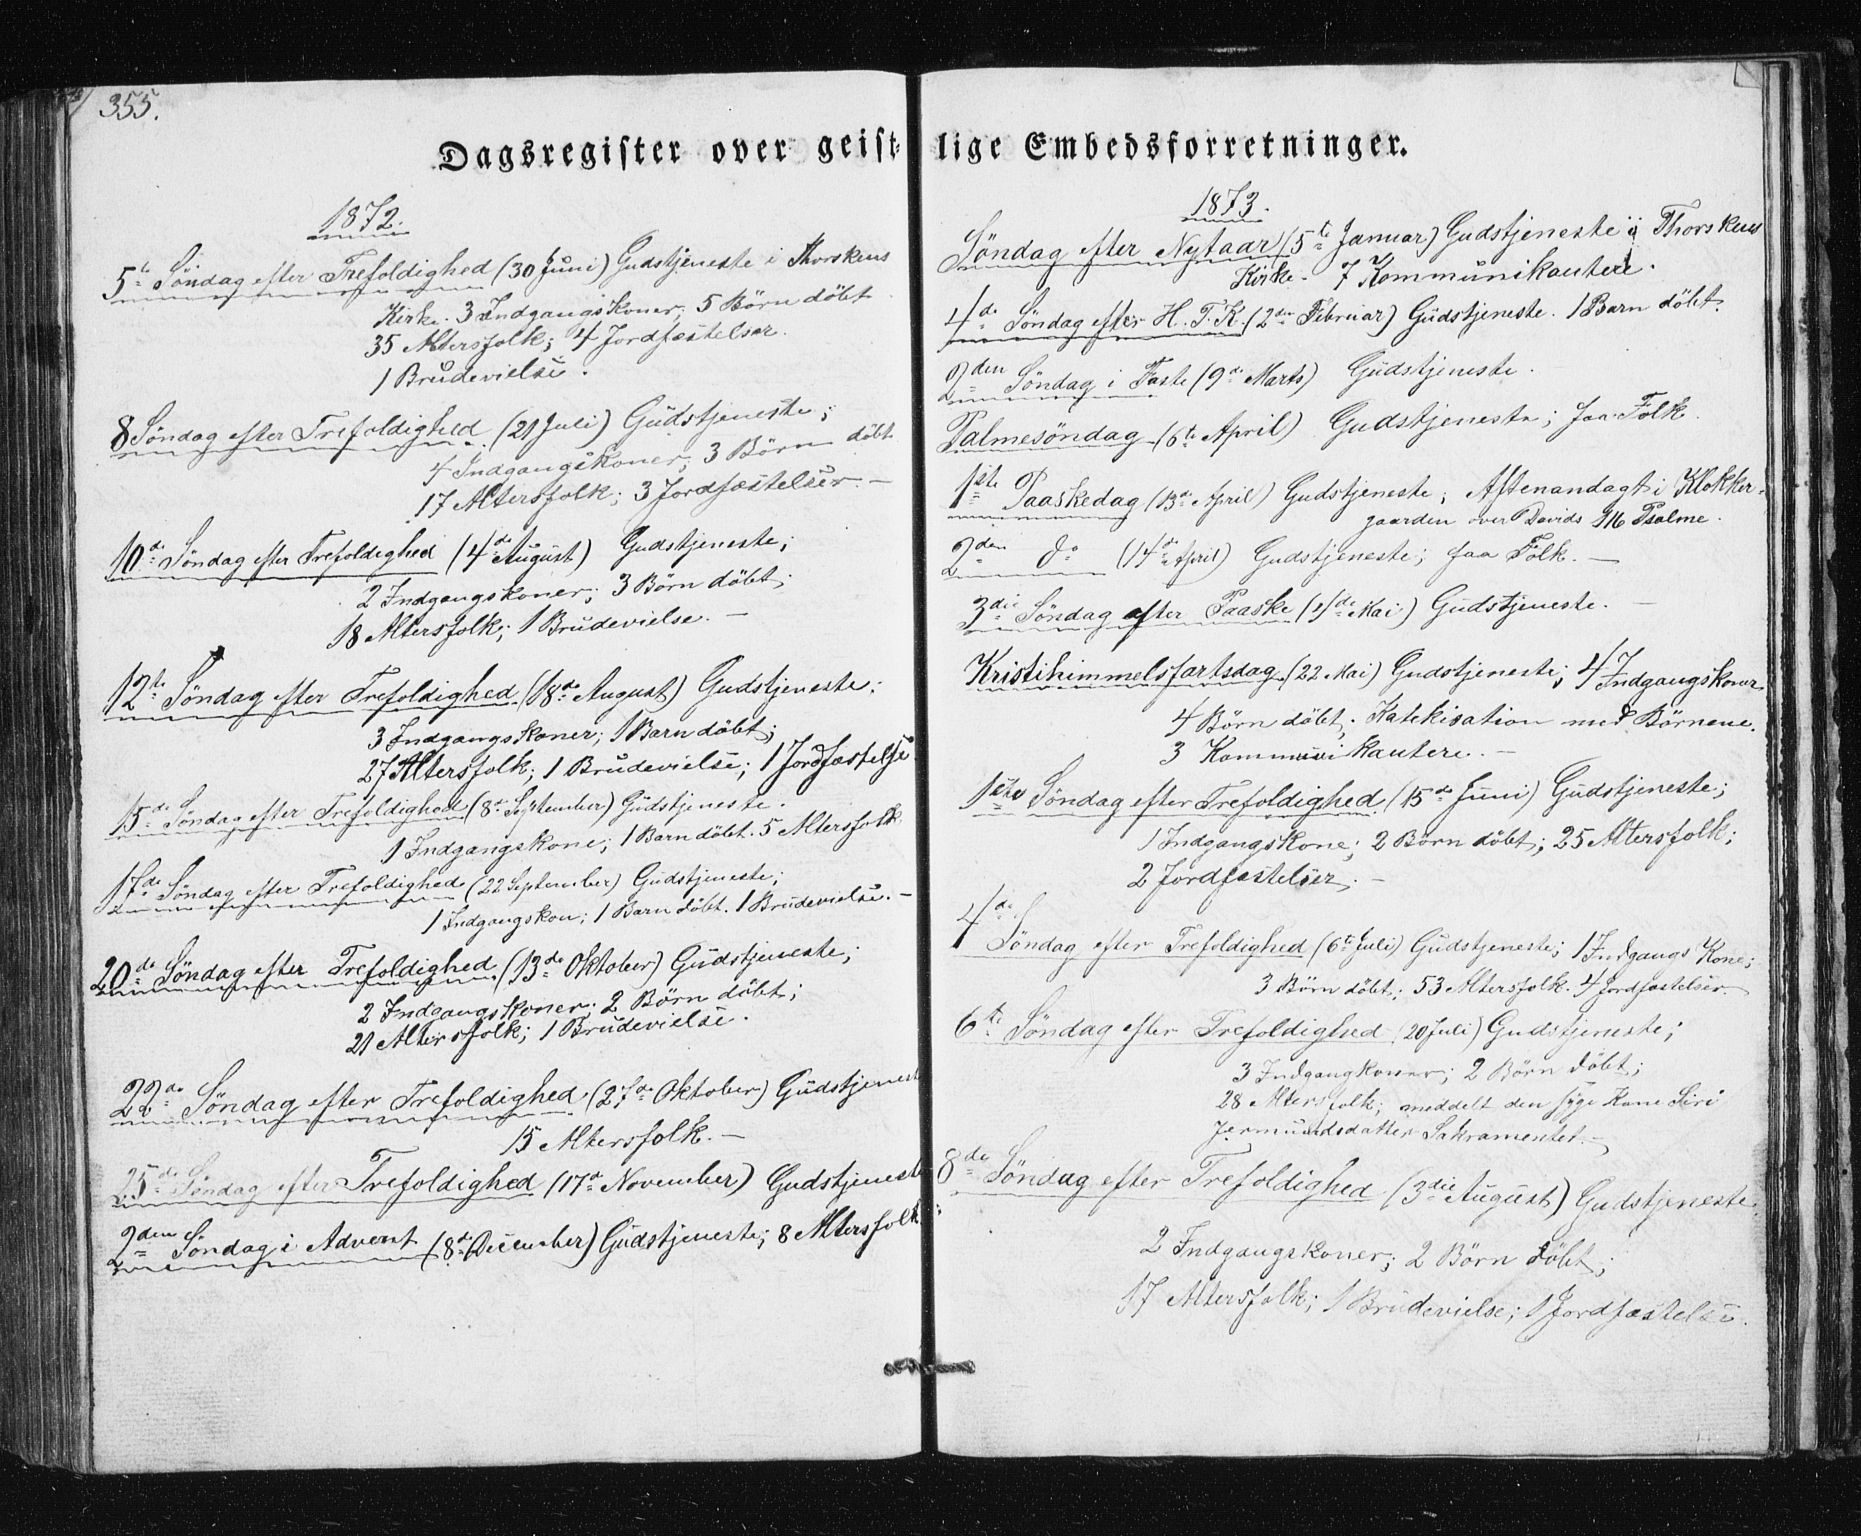 355.
Dagsregister over geist-
1872.
5te Söndag efter Trefoldighed (30 Juni) Gudstjeneste i Thorskens
Kirke. 3 Indgangskoner; 5 Börn döbt
35 Altersfolk; 4 Jordfæstelser.
1 Brudevielse.
8 Söndag efter Trefoldighed (21 Juli) Gudstjeneste;
4 Indgangskoner; 3 Börn döbt
17 Altersfolk; 3 Jordfæstelser. —
10de Söndag efter Trefoldighed (4de August) Gudstjeneste;
2 Indgangskoner; 3 Börn döbt;
18 Altersfolk; 1 Brudevielse. —
12te Söndag efter Trefoldighed (18de August) Gudstjeneste;
3 Indgangskoner; 1 Barn döbt;
27 Altersfolk; 1 Brudevielse; 1 Jordfæstelse
15de Söndag efter Trefoldighed (8de September) Gudstjeneste.
1 Indgangskone; 1 Barn döbt. 5 Altersfolk
17de Söndag efter Trefoldighed (22 September) Gudstjeneste;
1 Indgangskon; 1 Barn döbt. 1 Brudevielse. —
20de Söndag efter Trefoldighed (13de Oktober) Gudstjeneste;
2 Indgangskoner; 2 Börn döbt;
21 Altersfolk; 1 Brudevielse.
22de Söndag efter Trefoldighed (27de Oktober) Gudstjenest
15 Altersfolk. —
25de Söndag efter Trefoldighed (17de November) Gudstjeneste
2den Söndag i Advent (8de December) Gudstjeneste; 8 Altersfolk
lige Embedsforretninger.
1873.
Söndag efter Nytaar (5te Januar) Gudstjeneste i Thorskens
Kirke. 7 Kommunikantere.
4de Söndag efter H. T. K. (2den Februar) Gudstjeneste. 1 Barn döbt.
2den Söndag i Faste (9de Marts) Gudstjeneste.
Palmesöndag (6te April) Gudstjeneste; faa Folk.
1ste Paaskedag (13de April) Gudstjeneste; Aftenandagt i Klokker-
gaarden over Davids 116 Psalme.
2den do (14de April) Gudstjeneste; faa Folk. —
3die Söndag efter Paaske (4de Mai) Gudstjeneste. —
Kristihimmelsfartsdag (22 Mai) Gudstjeneste; 4 Indgangskoner
4 Börn döbt; Katekisation med Börnene.
3 Kommunikantere. —
1ste Söndag efter Trefoldighed (15de Juni) Gudstjeneste;
1 Indgangskone; 2 Börn döbt; 25 Altersfolk;
2 Jordfæstelser. —
4de Söndag efter Trefoldighed (6te Juli) Gudstjeneste; 1 Indgangs Kone;
3 Börn döbt; 53 Altersfolk. 4 Jordfæstelser.
6te Söndag efter Trefoldighed (20 Juli) Gudstjeneste;
3 Indgangkoner; 2 Börn döbt;
28 Altersfolk; meddelt den syge Kone Siri
Jermundsdatter Sakramentet. —
8de Söndag efter Trefoldighed (3die August) Gudstjeneste;
2 Indgangskoner; 2 Börn döbt;
17 Altersfolk; 1 Brudevielse; 1 Jordfæstelse.